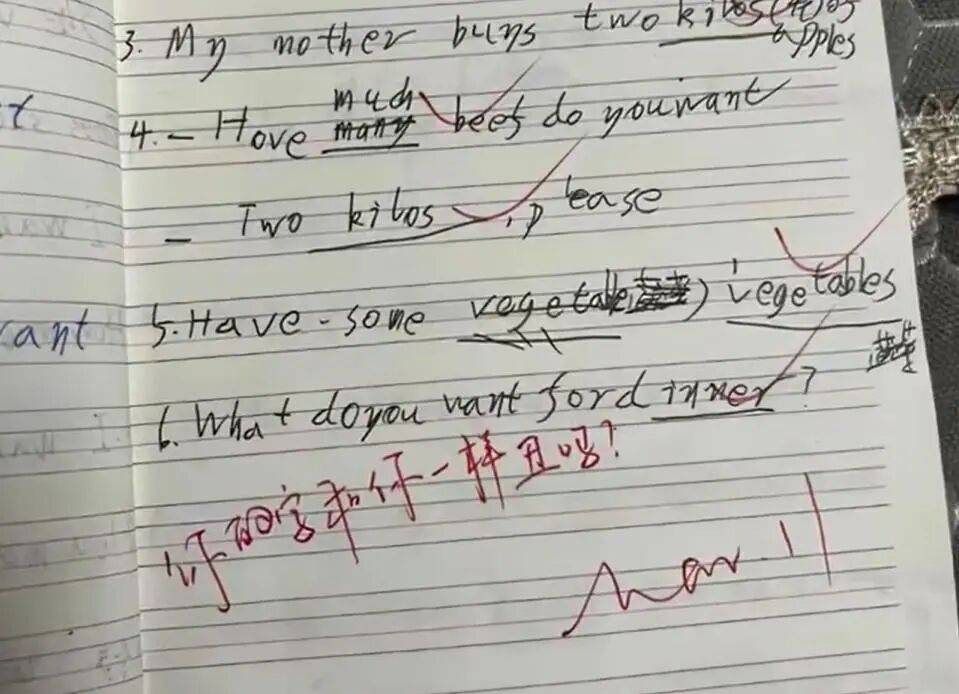 3. My mother buys two kilos
apples
much
4. - Hove many beef do you want
- Two kilos , please
ant
5. Have some vegetable) vegetables
6. What do you want for dinner?
你的字和你一样丑吗?
Mar. 11